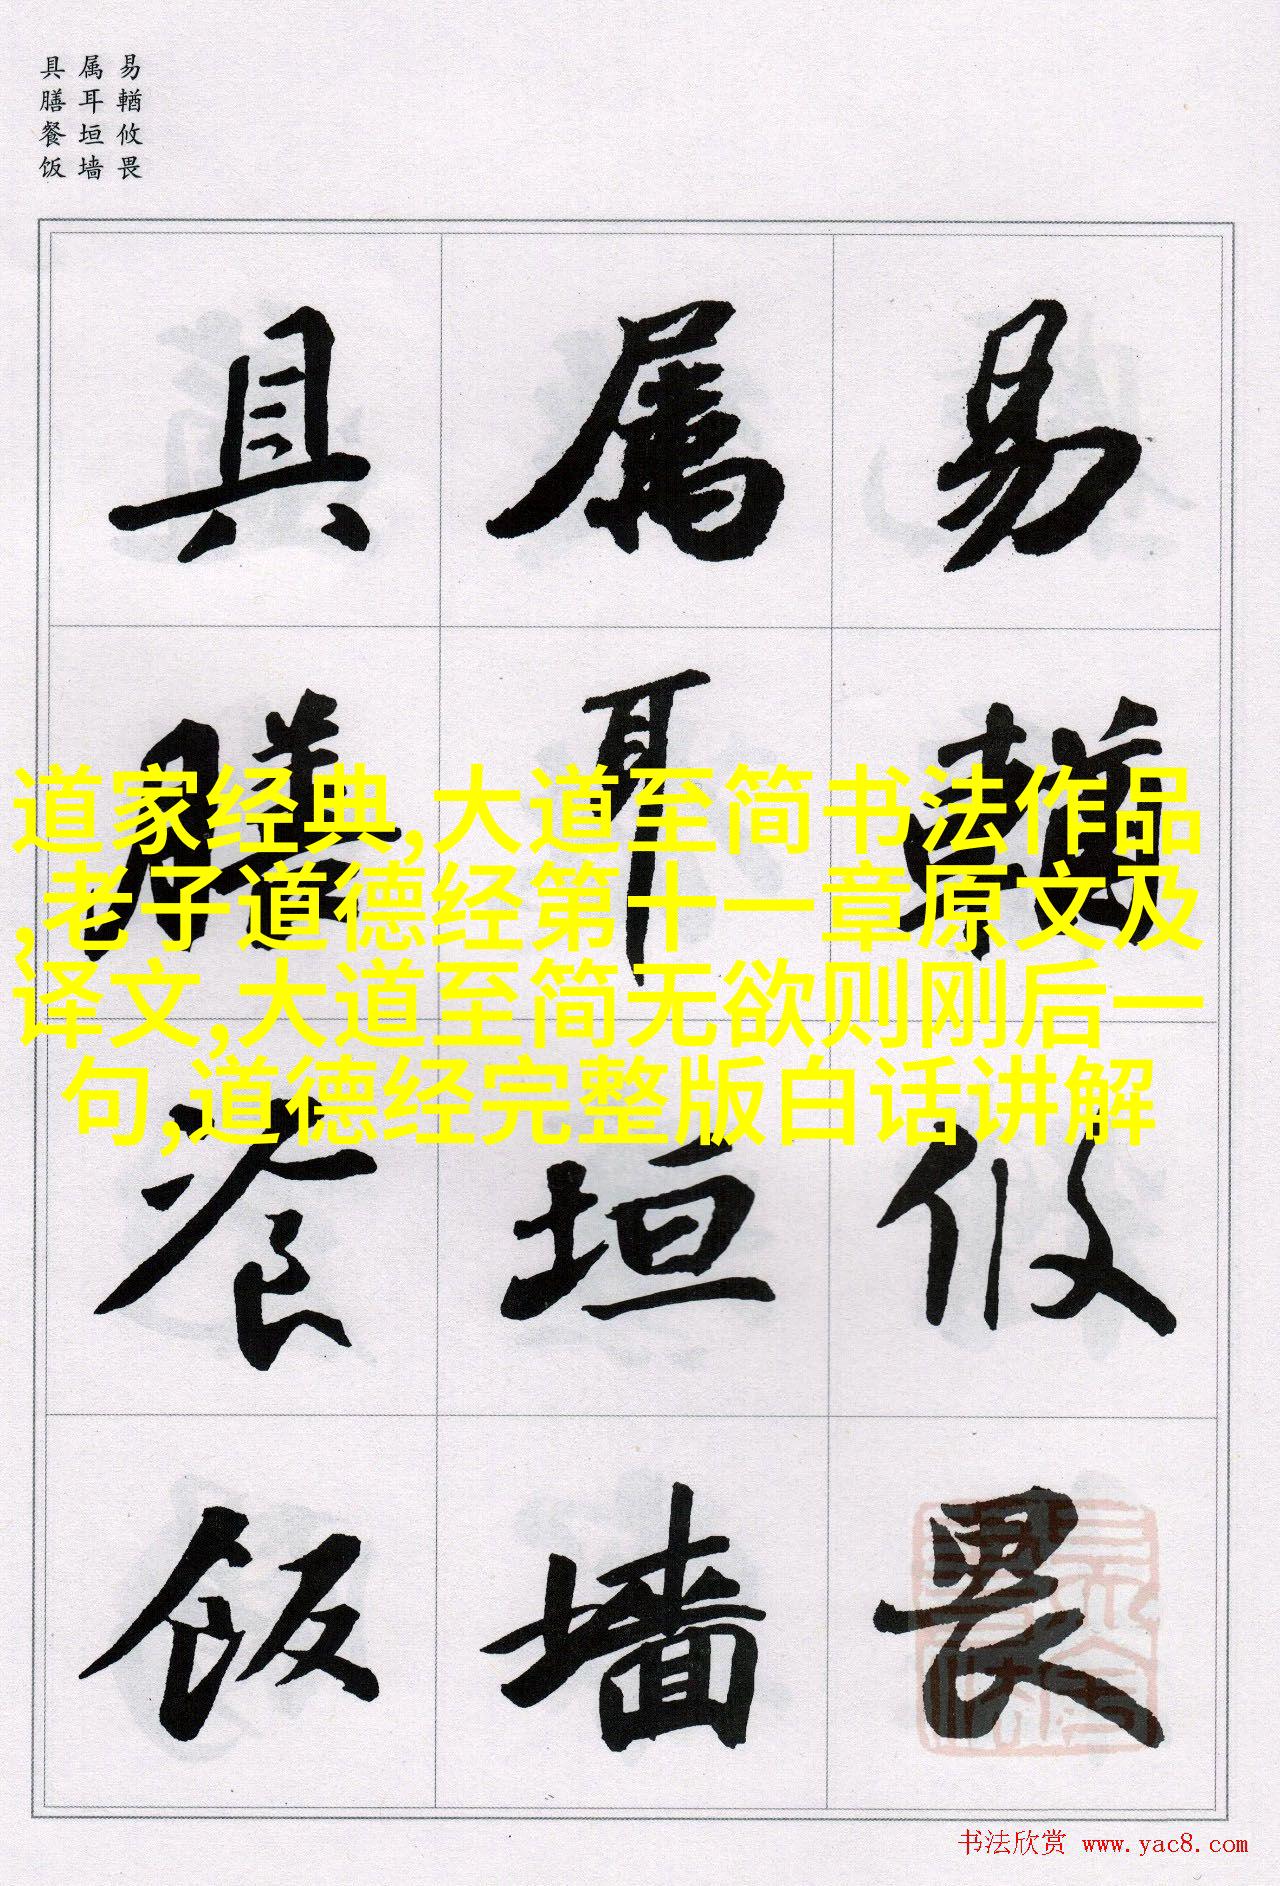 易輶攸畏
属耳垣墙
具膳餐饭
易輶攸畏
属耳垣墙
具膳餐饭
道家经典,大道至简书法作品
,老子道德经第十一章原文及
译文,大道至简无欲则刚后一
句,道德经完整版白话讲解
书法欣赏 www.yac8.com